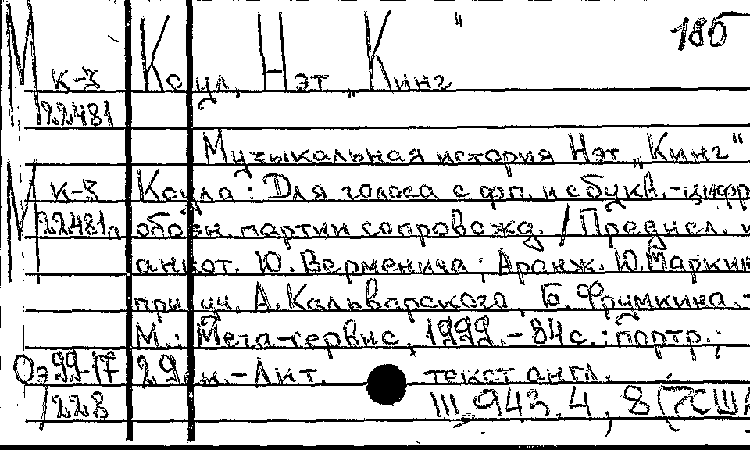 М к-3 Коул, Нэт „Кинг" 185
22481
Музыкальная история Нэт „Кинг"
М к-3 Коула: Для голоса с фп. и с букв.-цифр
22481а обозн. партии сопровожд. / Предисл. и
аннот. Ю. Верменича; Аранж. Ю. Маркин
при уч. А. Кальварского, Б. Фрумкина.-
М.: Мега-сервис, 1999.- 84 с.: портр.;
Оэ99-17 29 см.- Лит. текст англ.
/228 Ш 943.4, 8 (7США